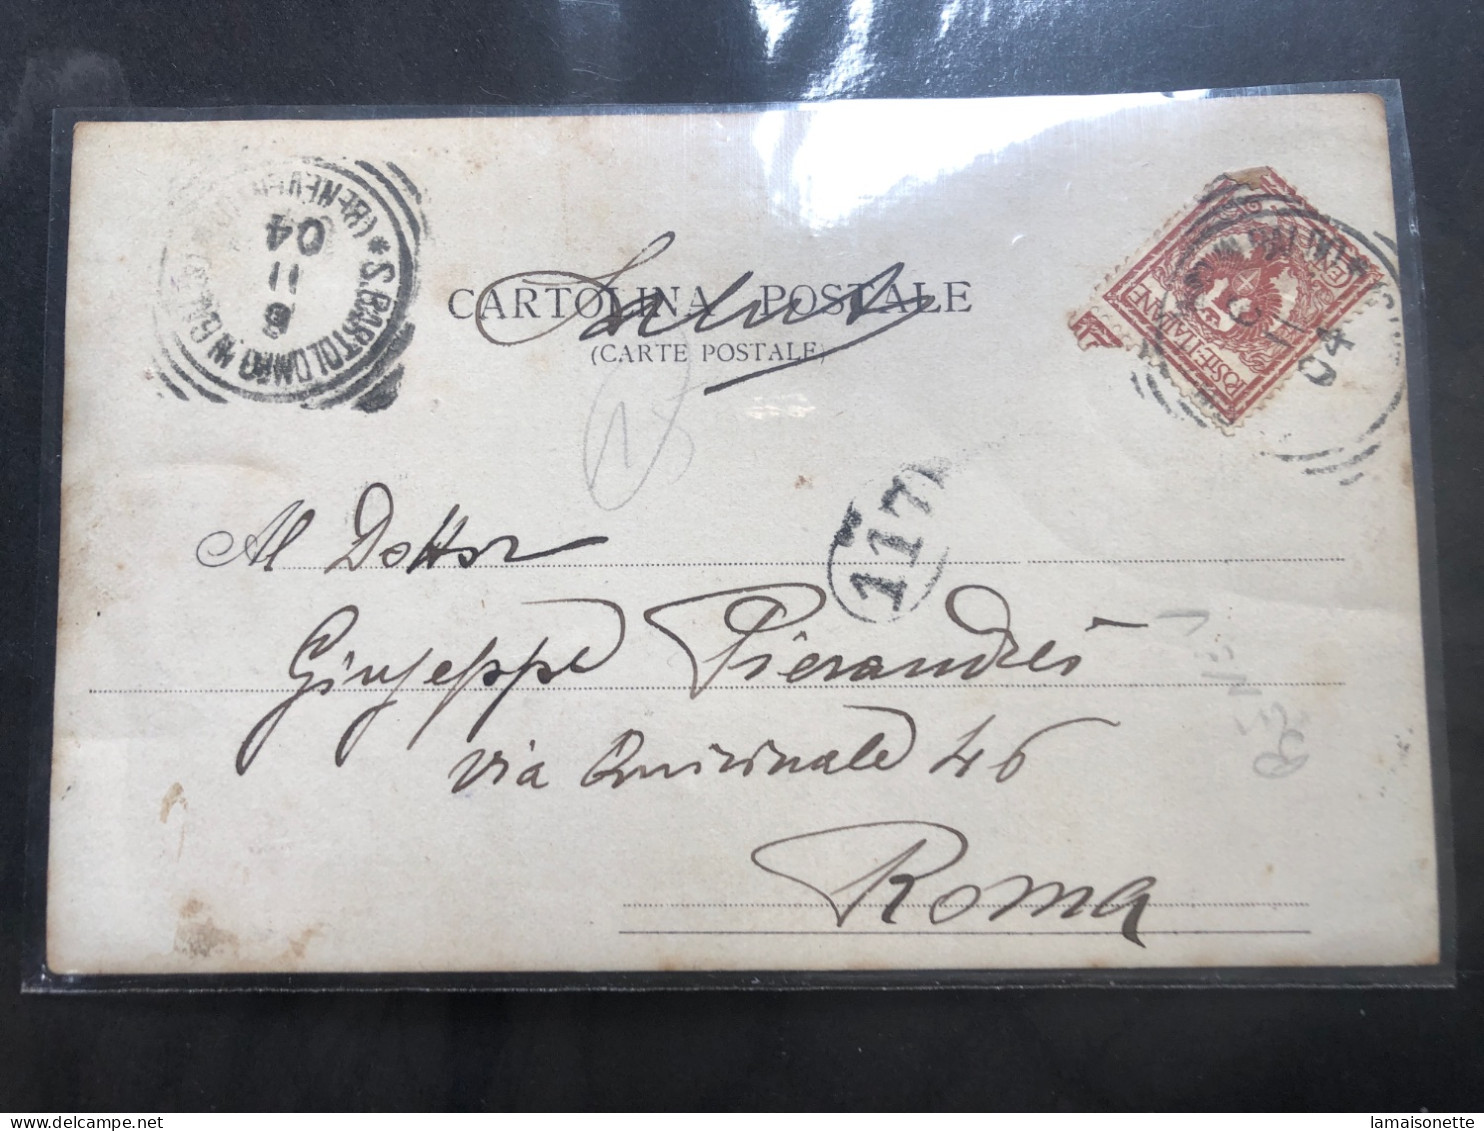 CARTOLINA POSTALE
(CARTE POSTALE)
Saluti
S. BARTOLOMEO IN GALDO
* (BENEVENTO)
6
11
04
POSTE ITALIANE
CENT
04
117
Al Dottor
Giuseppe Pierandrei
via Quirinale 46
Roma
lamaisonette